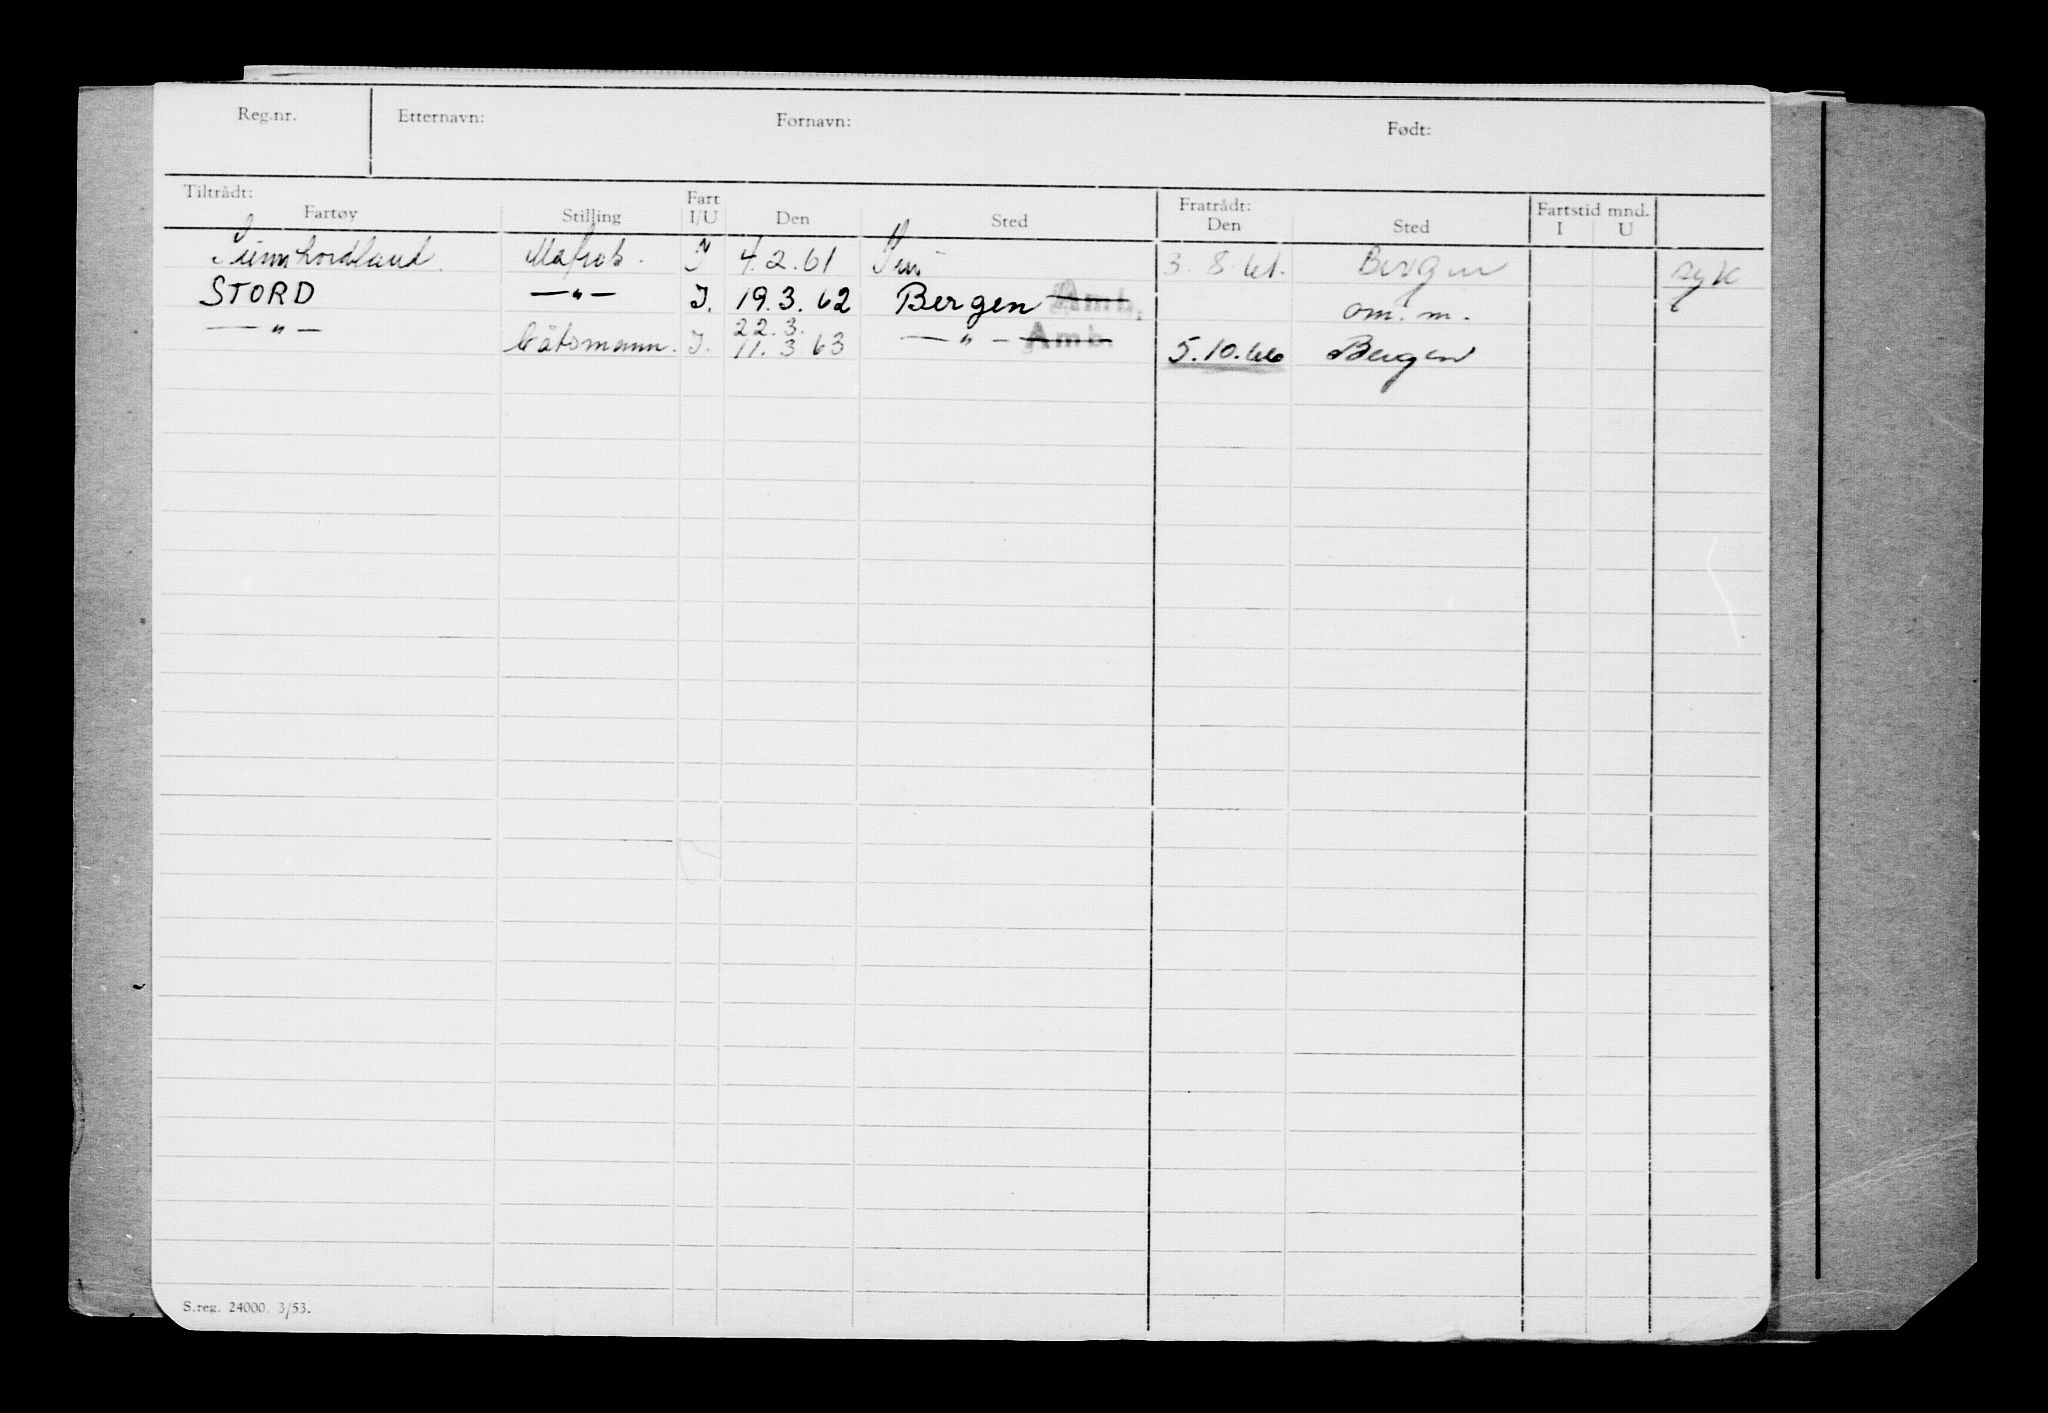 Reg.nr. Etternavn: Fornavn: Født:
Tiltrådt: Fratrådt: Fartstid mnd.
Fartøy Stilling Fart I/U Den Sted Den Sted I U
Sunnhordland. Matros. I 4.2.61 3.8.61. Bergen syk
STORD —"— I. 19.3.62 Bergen Amb. om. m.
—"— Båtsmann. I. 22.3. 11.3 63 —"— Amb. 5.10.66 Bergen
S.reg. 24000. 3/53.